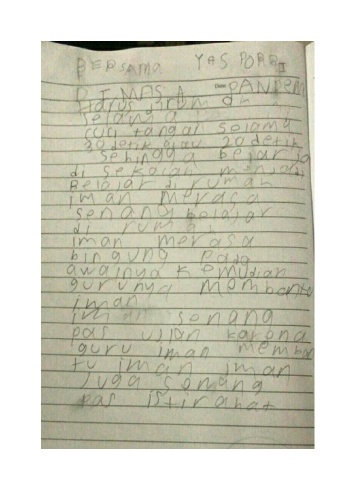 BERSAMA YAS PORBI
DI MASA Date: PANDEM
Harus dirumah
selama
cuci tangan selama
30 detik atau 20 detik
sehingga belajar
di sekolah menjadi
Belajar di rumah
iman merasa
senang belajar
di rumah
iman merasa
bingung pada
awalnya kemudian
gurunya membantu
iman
iman senang
pas ujian karena
guru iman memban
tu iman iman
Juga senang
pas istirahat